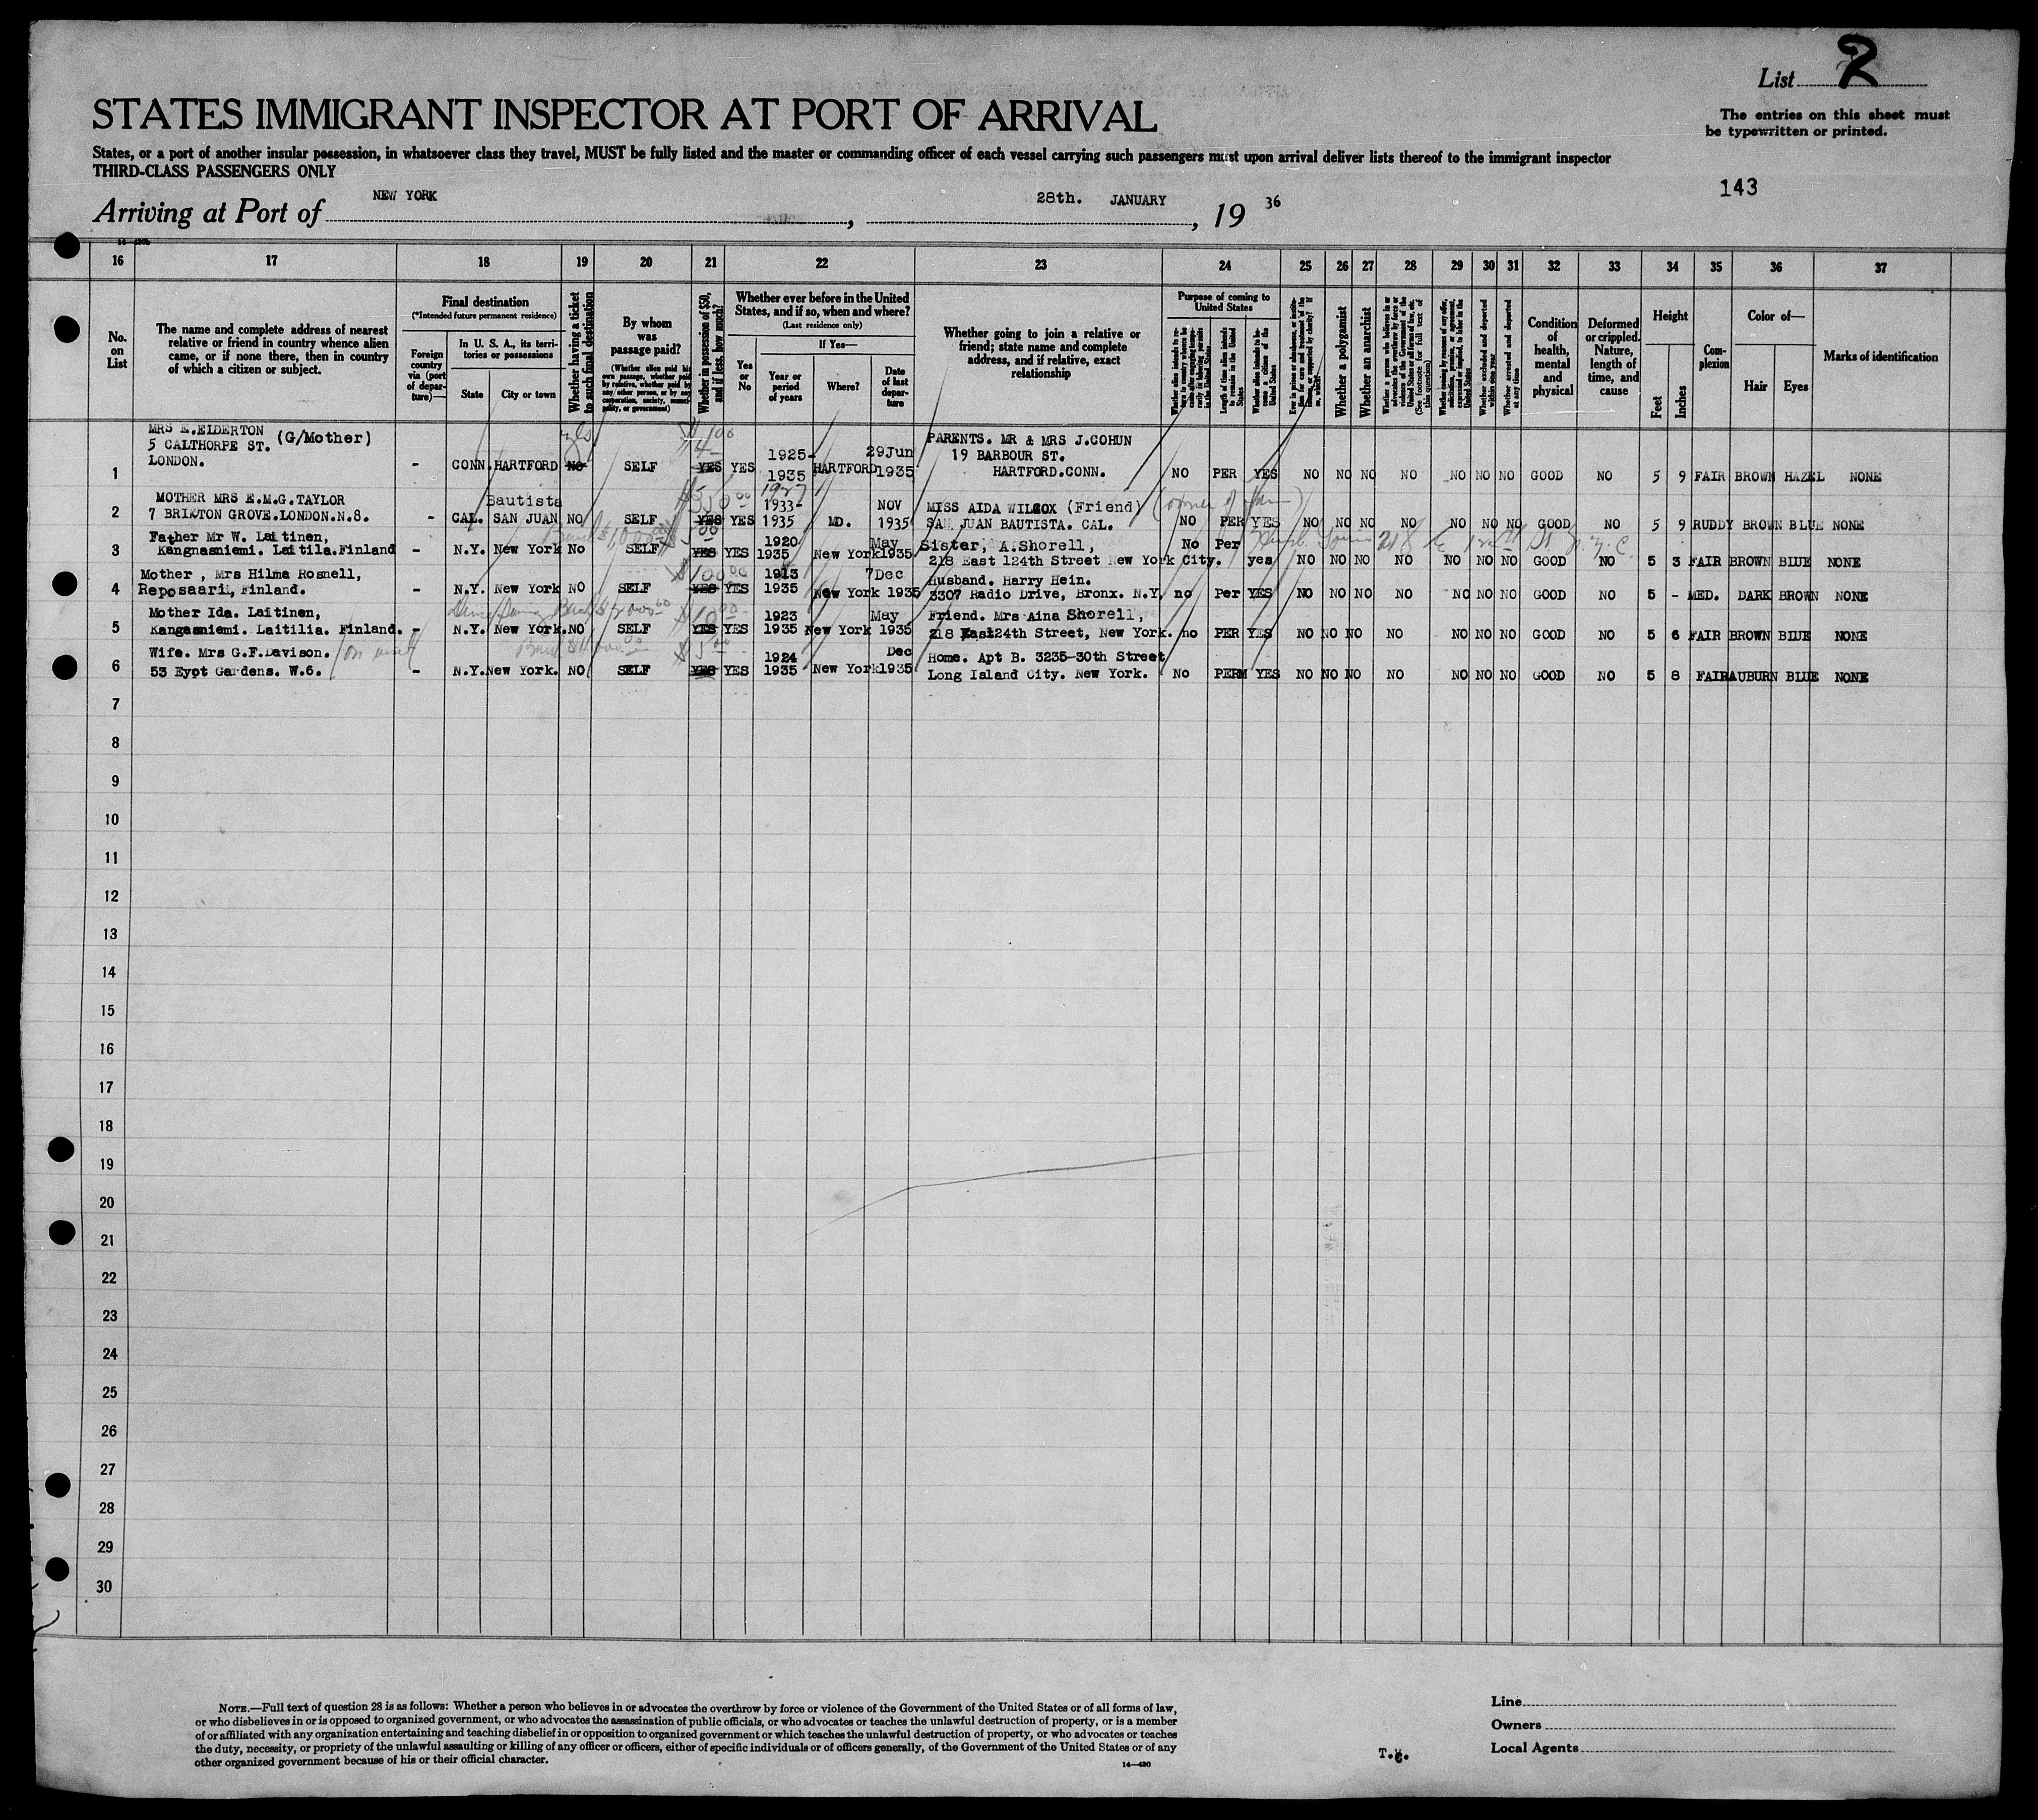 List 2
The entries on this sheet must
be typewritten or printed.
STATES IMMIGRANT INSPECTOR AT PORT OF ARRIVAL
States, or a port of another insular possession, in whatsoever class they travel, MUST be fully listed and the master or commanding officer of each vessel carrying such passengers must upon arrival deliver lists thereof to the immigrant inspector
THIRD-CLASS PASSENGERS ONLY
143
Arriving at Port of NEW YORK, 28th. JANUARY, 19 36
16 17 18 19 20 21 22 23 24 25 26 27 28 29 30 31 32 33 34 35 36 37
No. on List
The name and complete address of nearest relative or friend in country whence alien came, or if none there, then in country of which a citizen or subject.
Final destination
(*Intended future permanent residence)
Foreign country via (port of departure)—
In U. S. A., its territories or possessions
State
City or town
Whether having a ticket to such final destination
By whom was passage paid?
(Whether alien paid his own passage, whether paid by relative, whether paid by any other person, or by any corporation, society, municipality, or government)
Whether in possession of $50, and if less, how much?
Whether ever before in the United States, and if so, when and where?
(Last residence only)
Yes or No
If Yes—
Year or period of years
Where?
Date of last departure
Whether going to join a relative or friend; state name and complete address, and if relative, exact relationship
Purpose of coming to United States
Length of time alien intends to remain in the United States
Whether alien intends to become a citizen of the United States
Whether a polygamist
Whether an anarchist
Whether excluded and deported within one year
Whether arrested and deported at any time
Condition of health, mental and physical
Deformed or crippled. Nature, length of time, and cause
Height
Feet
Inches
Complexion
Color of—
Hair
Eyes
Marks of identification
MRS E.ELDERTON
5 CALTHORPE ST. (G/Mother)
LONDON.
1 - CONN. HARTFORD NO SELF YES YES 1925-1935 HARTFORD 29Jun 1935
PARENTS. MR & MRS J.COHUN
19 BARBOUR ST.
HARTFORD.CONN.
NO PER YES NO NO NO NO NO NO NO GOOD NO 5 9 FAIR BROWN HAZEL NONE
MOTHER MRS E.M.G.TAYLOR
2 7 BRIXTON GROVE.LONDON.N.8. - CAL. SAN JUAN Bautista NO SELF YES YES 1927 1933-1935 MD. NOV 1935
MISS AIDA WILCOX (Friend)
SAN JUAN BAUTISTA. CAL.
NO PER YES NO NO NO NO NO NO NO GOOD NO 5 9 RUDDY BROWN BLUE NONE
Father Mr W. Laitinen,
3 Kangnasniemi. Laitila.Finland - N.Y. New York No SELF YES YES 1920 1935 New York May 1935
Sister, A.Shorell,
218 East 124th Street New York City.
No Per yes NO NO NO NO NO NO NO GOOD NO 5 3 FAIR BROWN BLUE NONE
Mother , Mrs Hilma Rosnell,
4 Reposaari, Finland. - N.Y. New York NO SELF YES YES 1913 1935 New York 7Dec 1935
Husband. Harry Hein.
3307 Radio Drive, Bronx. N.Y.
no Per YES NO NO NO NO NO NO NO GOOD NO 5 - MED. DARK BROWN NONE
Mother Ida. Laitinen,
5 Kangasniemi. Laitilia. Finland. - N.Y. New York. NO SELF YES YES 1923 1935 New York May 1935
Friend. Mrs Aina Shorell,
218 East124th Street, New York.
no PER YES NO NO NO NO NO NO NO GOOD NO 5 6 FAIR BROWN BLUE NONE
Wife. Mrs G.F.Davison. on visit
6 53 Eyot Gardens. W.6. - N.Y. New York. NO SELF YES YES 1924 1935 New York Dec 1935
Home. Apt B. 3235-30th Street
Long Island City. New York.
No PERM YES NO NO NO NO NO NO NO GOOD NO 5 8 FAIR AUBURN BLUE NONE
7
8
9
10
11
12
13
14
15
16
17
18
19
20
21
22
23
24
25
26
27
28
29
30
NOTE.—Full text of question 28 is as follows: Whether a person who believes in or advocates the overthrow by force or violence of the Government of the United States or of all forms of law,
or who disbelieves in or is opposed to organized government, or who advocates the assassination of public officials, or who advocates or teaches the unlawful destruction of property, or is a member
of or affiliated with any organization entertaining and teaching disbelief in or opposition to organized government or which teaches the unlawful destruction of property, or who advocates or teaches
the duty, necessity, or propriety of the unlawful assaulting or killing of any officer or officers, either of specific individuals or of officers generally, of the Government of the United States or of any
other organized government because of his or their official character.
14—430
Line
Owners
Local Agents